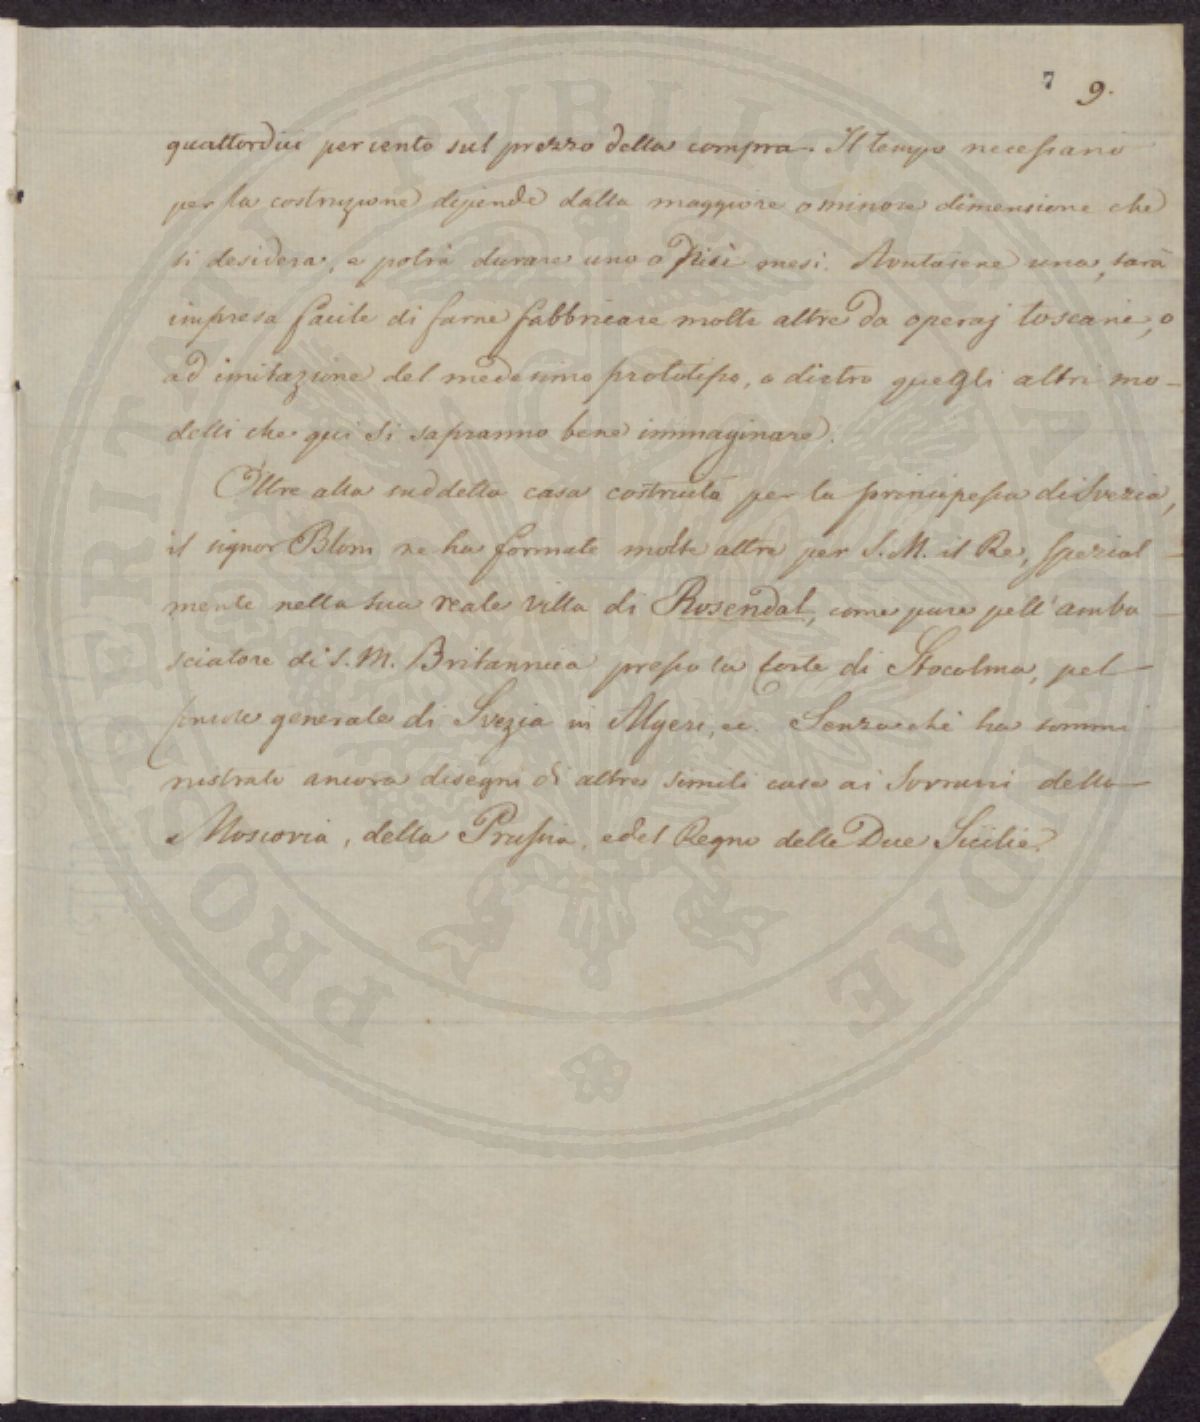 7 9.
quattordici per cento sul prezzo della compra. Il tempo necessario
per la costruzione dipende dalla maggiore o minore dimensione che
si desidera, e potrà durare uno o mesi. Avutasene una, sarà
impresa facile di farne fabbricare molte altre da operaj toscani, o
ad imitazione del medesimo prototipo, o dietro quegli altri mo-
delli che qui si sapranno bene immaginare.
Oltre alla suddetta casa costruita per la principessa di Svezia,
il signor Blom ne ha formate molte altre per S. M. il Re, spezial-
mente nella sua reale villa di Rosendal, come pure pell' amba-
sciatore di S. M. Britannica presso la Corte di Stocolma, pel
Console generale di Svezia in Algeri, ec. Senza chè ha sommi
nistrato ancora disegni di altre simili case ai Sovrani della
Moscovia, della Prussia, e del Regno delle Due Sicilie.
PROSPERITATI PVBLICAE AVGENDAE